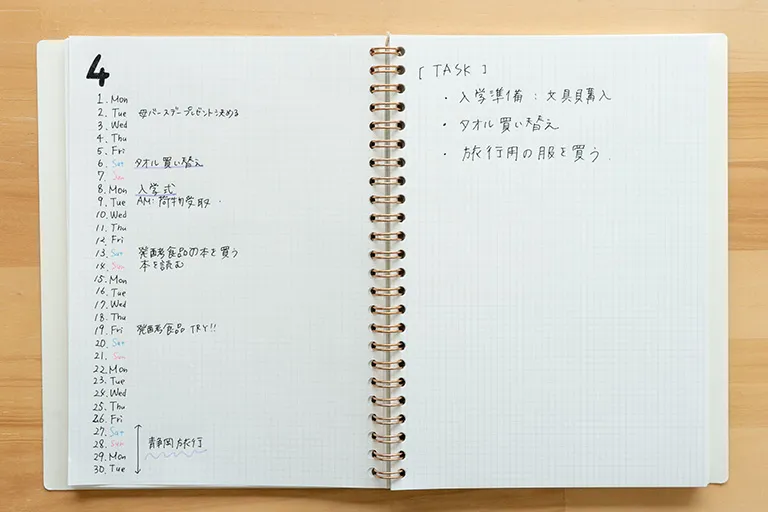 4
1. Mon
2. Tue 母バースデープレゼント決める
3. Wed
4. Thu
5. Fri
6. Sat タオル買い替え
7. Sun
8. Mon 入学式
9. Tue AM:荷物受取.
10. Wed
11. Thu
12. Fri
13. Sat 発酵食品の本を買う
14. Sun 本を読む
15. Mon
16. Tue
17. Wed
18. Thu
19. Fri 発酵食品 TRY!!
20. Sat
21. Sun
22. Mon
23. Tue
24. Wed
25. Thu
26. Fri
27. Sat
28. Sun 静岡旅行
29. Mon
30. Tue
[ TASK ]
・入学準備:文具購入
・タオル買い替え
・旅行用の服を買う.